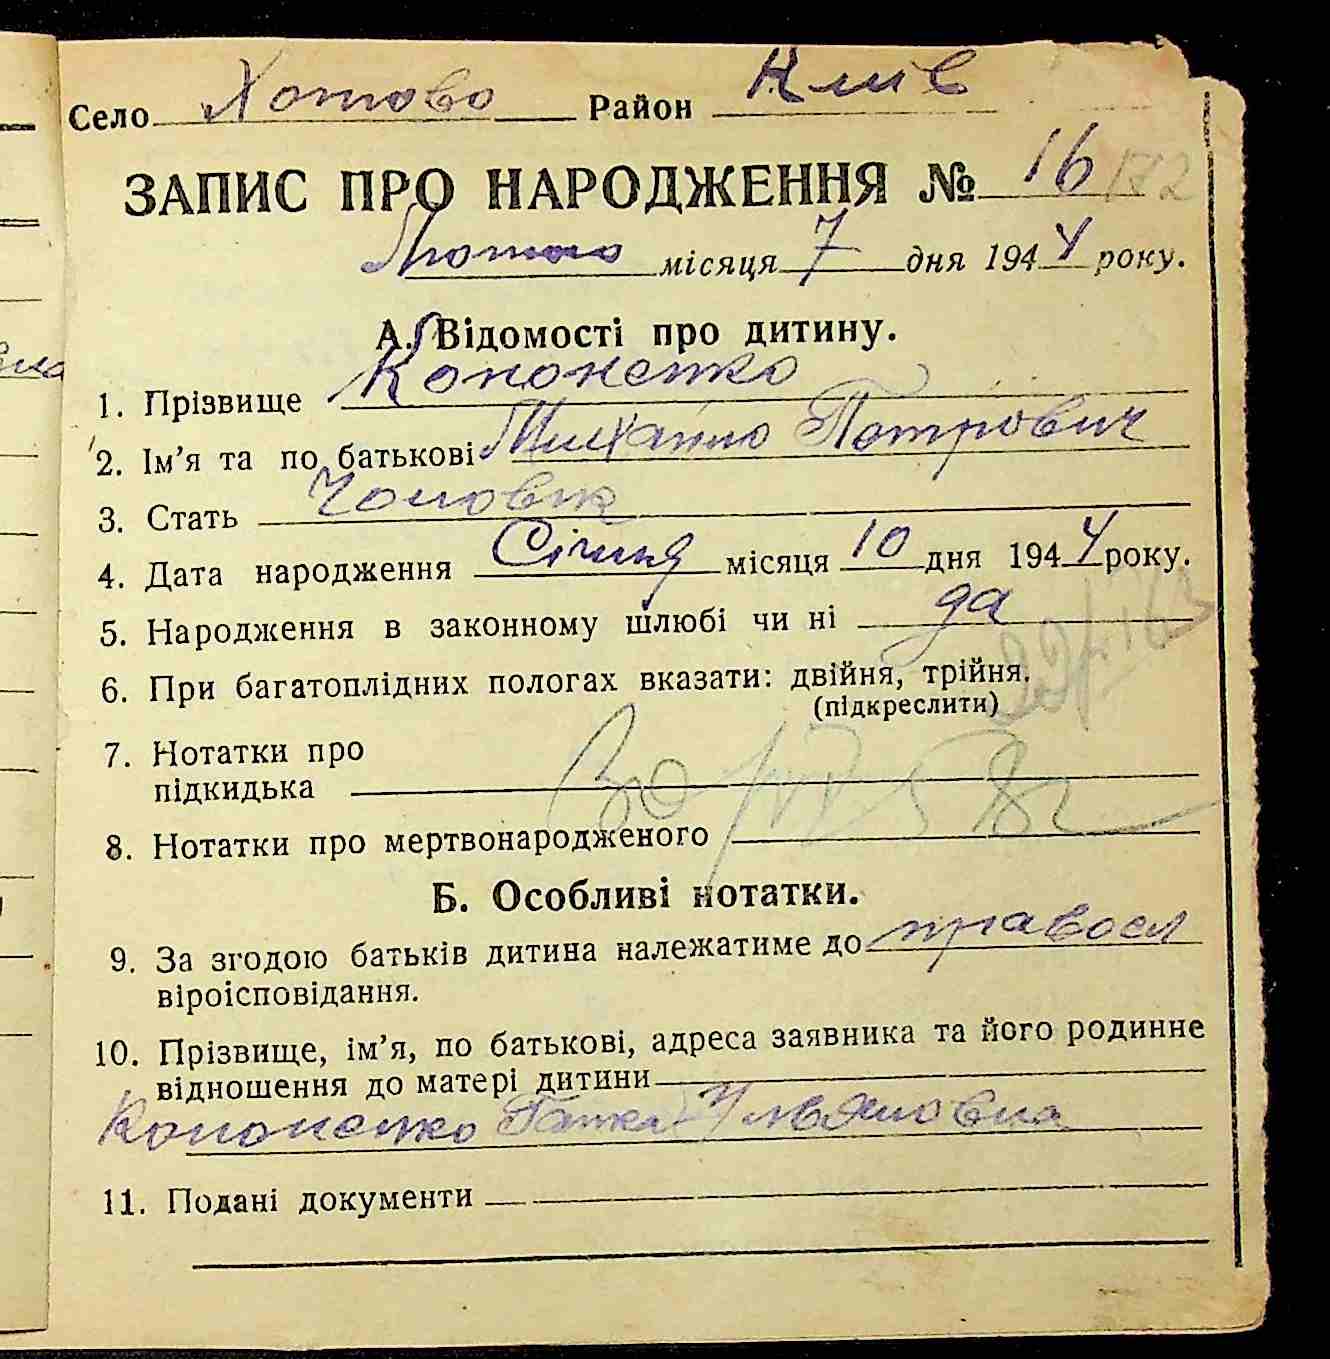 Село Хотово Район Київ
ЗАПИС ПРО НАРОДЖЕННЯ № 16 172
Лютого місяця 7 дня 1944 року.
А. Відомості про дитину.
1. Прізвище Кононенко
2. Ім'я та по батькові Михайло Петрович
3. Стать Чоловік
4. Дата народження Січня місяця 10 дня 1944 року.
5. Народження в законному шлюбі чи ні да
6. При багатоплідних пологах вказати: двійня, трійня.
(підкреслити)
7. Нотатки про
підкидька
8. Нотатки про мертвонародженого
Б. Особливі нотатки.
9. За згодою батьків дитина належатиме до правосл
віроісповідання.
10. Прізвище, ім'я, по батькові, адреса заявника та його родинне
відношення до матері дитини
Кононенко Ганна Ульяновна
11. Подані документи